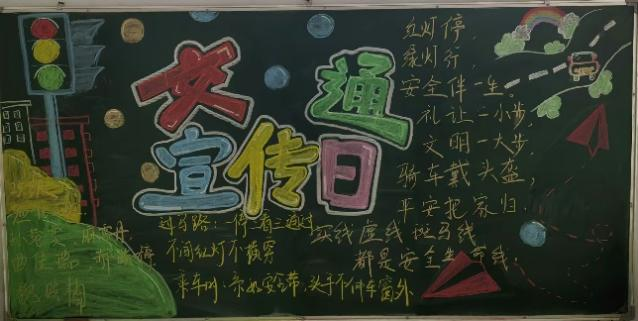 交通
宣传日
红灯停,
绿灯行,
安全伴一生。
礼让一小步,
文明一大步,
骑车戴头盔,
平安把家归。
实线虚线斑马线
都是安全生命线。
过马路:一停二看三通过
不闯红灯不
乘车时,系好安全带,头手不伸车窗外